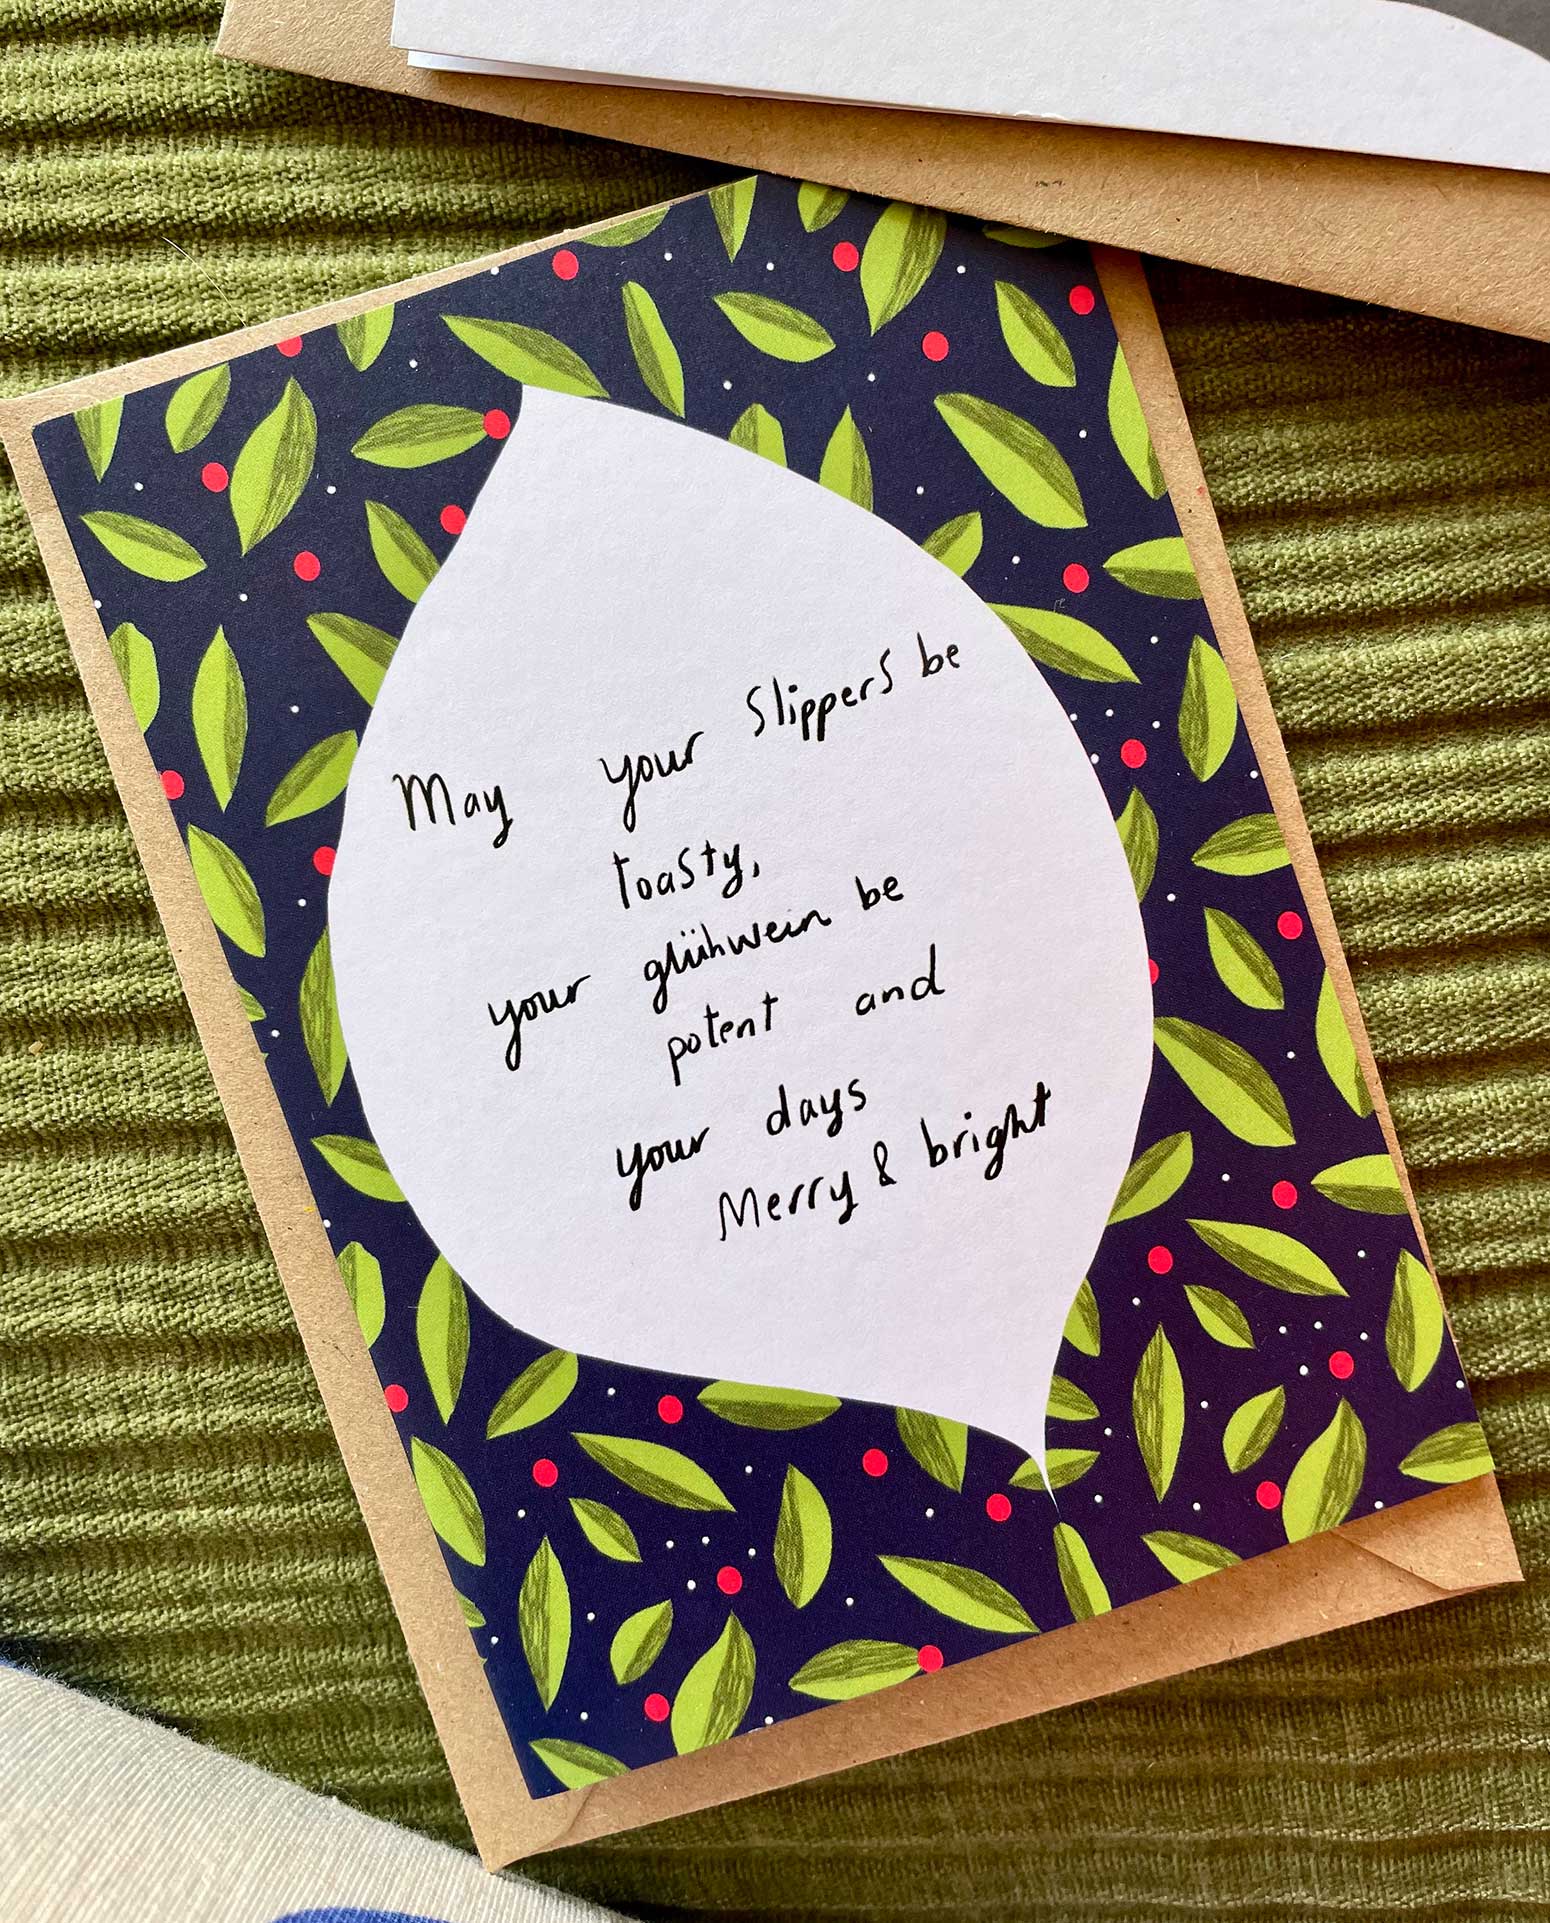 May your slippers be
toasty,
your glühwein be
potent and
your days
Merry & bright